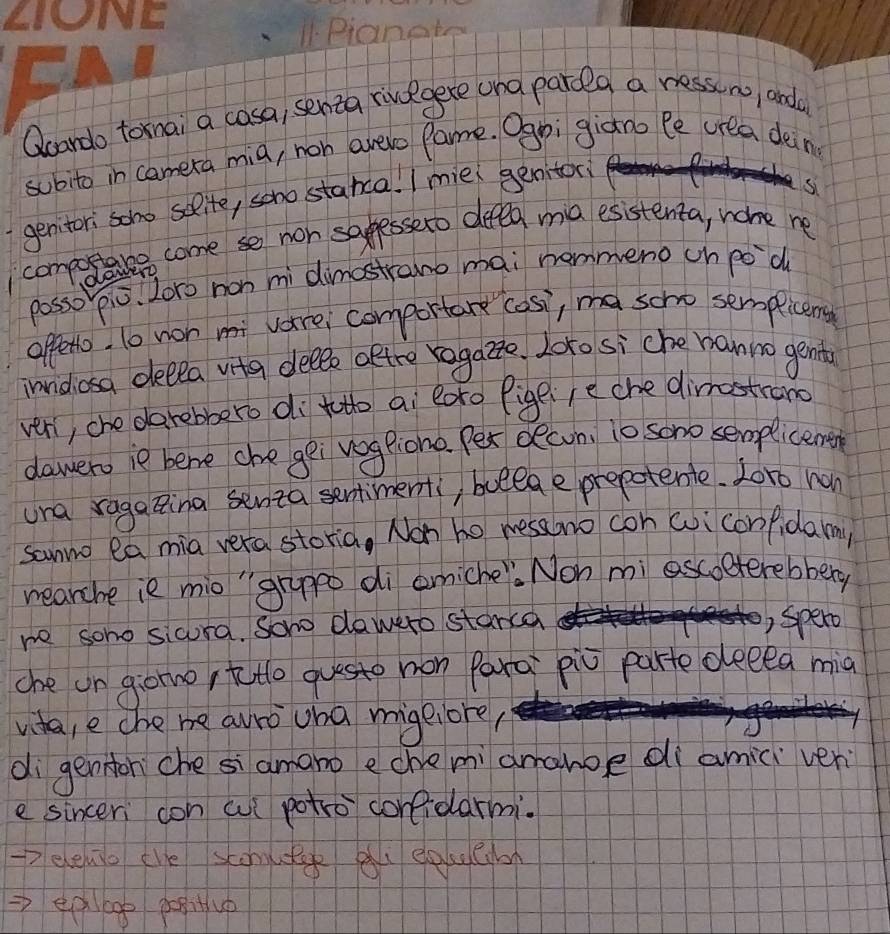 ZIONE
Il Pianeta
Quando tornai a casa, senza rivolgere una parola a nessuno, andai
subito in camera mia, non avevo fame. Ogni giorno le urla dei miei
genitori sono solite, sono stanca. I miei genitori si
comportano come se non sapessero della mia esistenza, none ne
posso davvero più. Loro non mi dimostrano mai nemmeno un pò di
affetto. Io non mi vorrei comportare così, ma sono semplicemente
invidiosa della vita delle altre ragazze. Loro sì che hanno genitori
veri, che darebbero di tutto ai loro figli, e che dimostrano
davvero il bene che gli vogliono. Per alcuni io sono semplicemente
una ragazzina senza sentimenti, bulla e prepotente. Loro non
sanno la mia vera storia, Non ho nessuno con cui confidarmi,
neanche il mio "gruppo di amiche". Non mi ascolterebbero,
ne sono sicura. Sono davvero stanca, spero
che un giorno, tutto questo non farai più parte della mia
vita, e che ne avrò una migliore,
di genitori che si amano e che mi amano e di amici veri
e sinceri con cui potrò confidarmi.
→ evento che sconvolge gli equilibri
→ epilogo positivo